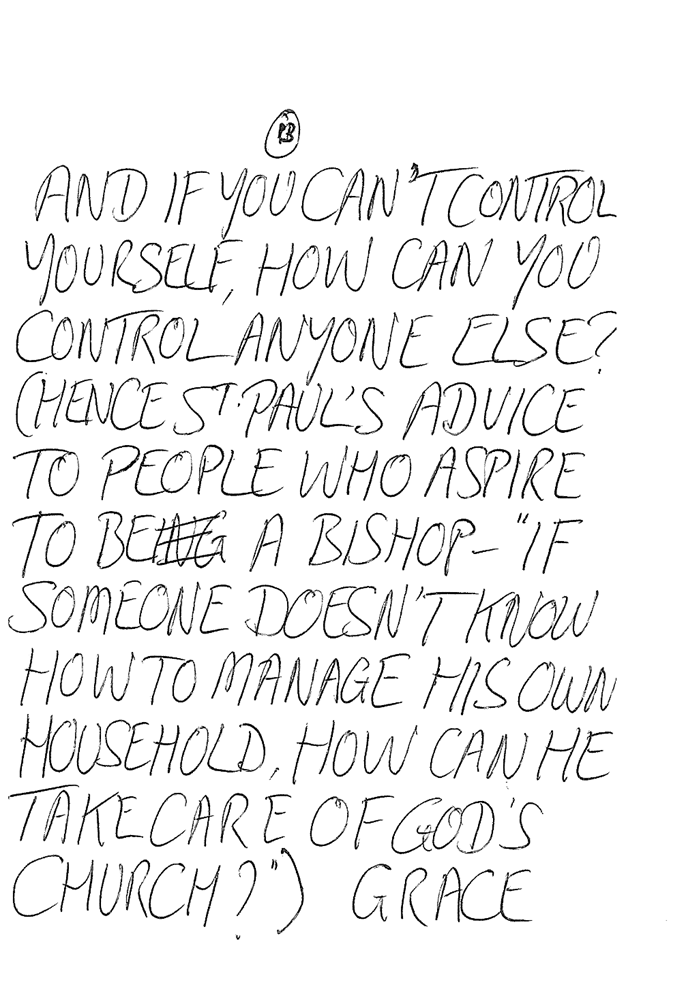 13
AND IF YOU CAN'T CONTROL
YOURSELF, HOW CAN YOU
CONTROL ANYONE ELSE?
(HENCE ST. PAUL'S ADVICE
TO PEOPLE WHO ASPIRE
TO BE A BISHOP- "IF
SOMEONE DOESN'T KNOW
HOW TO MANAGE HIS OWN
HOUSEHOLD, HOW CAN HE
TAKE CARE OF GOD'S
CHURCH?") GRACE